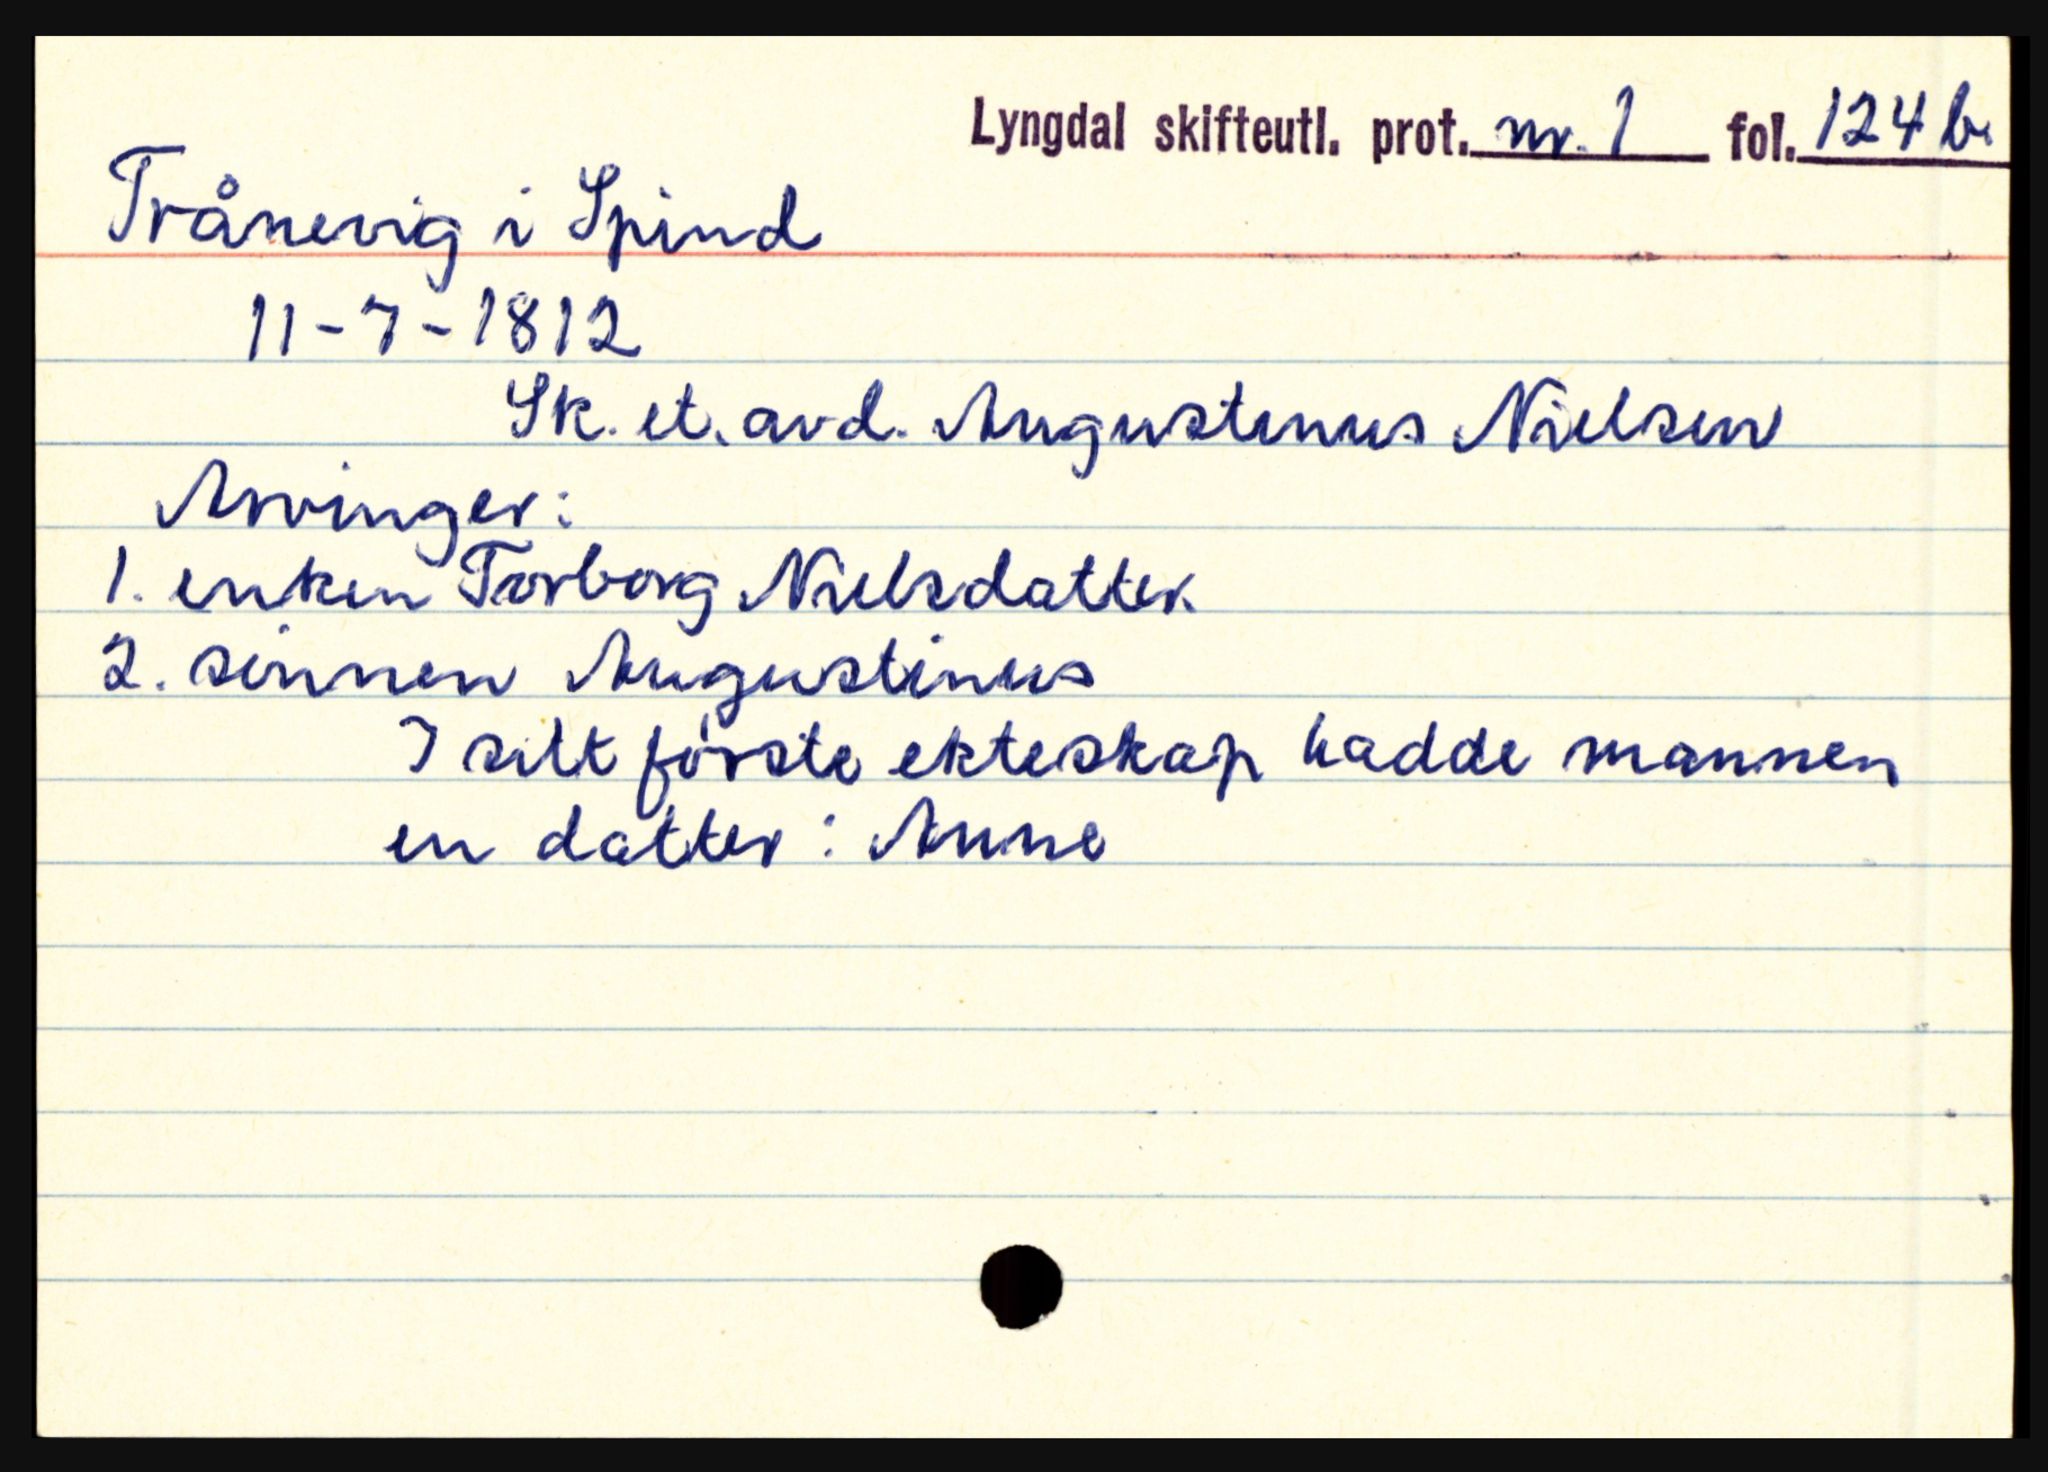 Lyngdal skifteutl. prot. nr. 1 fol. 124 b.
Trånevig i Spind
11-7-1812
Sk. et. avd. Augustinus Nielsen
Arvinger:
1. enken Torborg Nielsdatter.
2. sönnen Augustinus
I sitt förste ekteskap hadde mannen
en datter: Anne